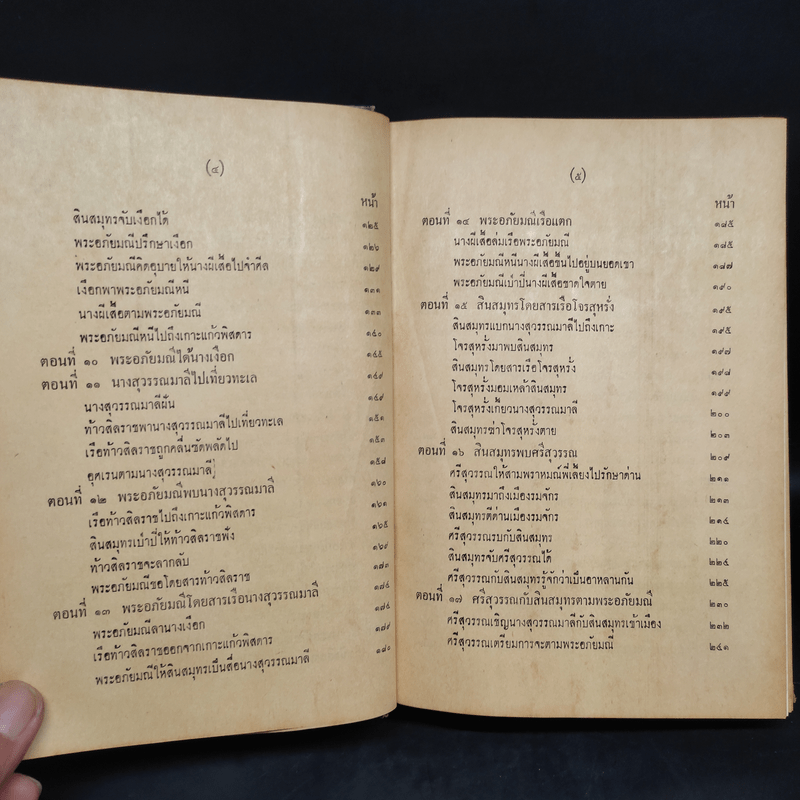 (๔)
หน้า
สินสมุทรจับเงือกได้ ๑๒๕
พระอภัยมณีปรึกษาเงือก ๑๒๖
พระอภัยมณีคิดอุบายให้นางผีเสื้อไปจำศีล ๑๒๙
เงือกพาพระอภัยมณีหนี ๑๓๑
นางผีเสื้อตามพระอภัยมณี ๑๓๓
พระอภัยมณีหนีไปถึงเกาะแก้วพิสดาร ๑๔๐
ตอนที่ ๑๐ พระอภัยมณีได้นางเงือก ๑๔๕
ตอนที่ ๑๑ นางสุวรรณมาลีไปเที่ยวทะเล ๑๔๙
นางสุวรรณมาลีฝัน ๑๔๙
ท้าวสิลราชพานางสุวรรณมาลีไปเที่ยวทะเล ๑๕๑
เรือท้าวสิลราชถูกคลื่นซัดพลัดไป ๑๕๓
อุศเรนตามนางสุวรรณมาลี ๑๕๘
ตอนที่ ๑๒ พระอภัยมณีพบนางสุวรรณมาลี ๑๖๐
เรือท้าวสิลราชไปถึงเกาะแก้วพิสดาร ๑๖๑
สินสมุทรเป่าปี่ให้ท้าวสิลราชฟัง ๑๖๕
ท้าวสิลราชจะลากลับ ๑๖๙
พระอภัยมณีขอโดยสารท้าวสิลราช ๑๗๓
ตอนที่ ๑๓ พระอภัยมณีโดยสารเรือนางสุวรรณมาลี ๑๗๔
พระอภัยมณีลานางเงือก ๑๗๔
เรือท้าวสิลราชออกจากเกาะแก้วพิสดาร ๑๗๙
พระอภัยมณีให้สินสมุทรเป็นสื่อนางสุวรรณมาลี ๑๘๐
(๕)
หน้า
ตอนที่ ๑๔ พระอภัยมณีเรือแตก ๑๘๕
นางผีเสื้อล่มเรือพระอภัยมณี ๑๘๕
พระอภัยมณีหนีนางผีเสื้อขึ้นไปอยู่บนยอดเขา ๑๘๗
พระอภัยมณีเป่าปี่นางผีเสื้อขาดใจตาย ๑๙๐
ตอนที่ ๑๕ สินสมุทรโดยสารเรือโจรสุหรั่ง ๑๙๕
สินสมุทรแบกนางสุวรรณมาลีไปถึงเกาะ ๑๙๕
โจรสุหรั่งมาพบสินสมุทร ๑๙๗
สินสมุทรโดยสารเรือโจรสุหรั่ง ๑๙๘
โจรสุหรั่งมอมเหล้าสินสมุทร ๑๙๙
โจรสุหรั่งเกี้ยวนางสุวรรณมาลี ๒๐๐
สินสมุทรฆ่าโจรสุหรั่งตาย ๒๐๓
ตอนที่ ๑๖ สินสมุทรพบศรีสุวรรณ ๒๐๙
ศรีสุวรรณให้สามพราหมณ์พี่เลี้ยงไปรักษาด่าน ๒๑๑
สินสมุทรมาถึงเมืองรมจักร ๒๑๓
สินสมุทรตีด่านเมืองรมจักร ๒๑๔
ศรีสุวรรณรบกับสินสมุทร ๒๒๐
สินสมุทรจับศรีสุวรรณได้ ๒๒๔
ศรีสุวรรณกับสินสมุทรรู้จักว่าเป็นอาหลานกัน ๒๒๕
ตอนที่ ๑๗ ศรีสุวรรณกับสินสมุทรตามพระอภัยมณี ๒๓๐
ศรีสุวรรณเชิญนางสุวรรณมาลีกับสินสมุทรเข้าเมือง ๒๓๒
ศรีสุวรรณเตรียมการจะตามพระอภัยมณี ๒๔๑